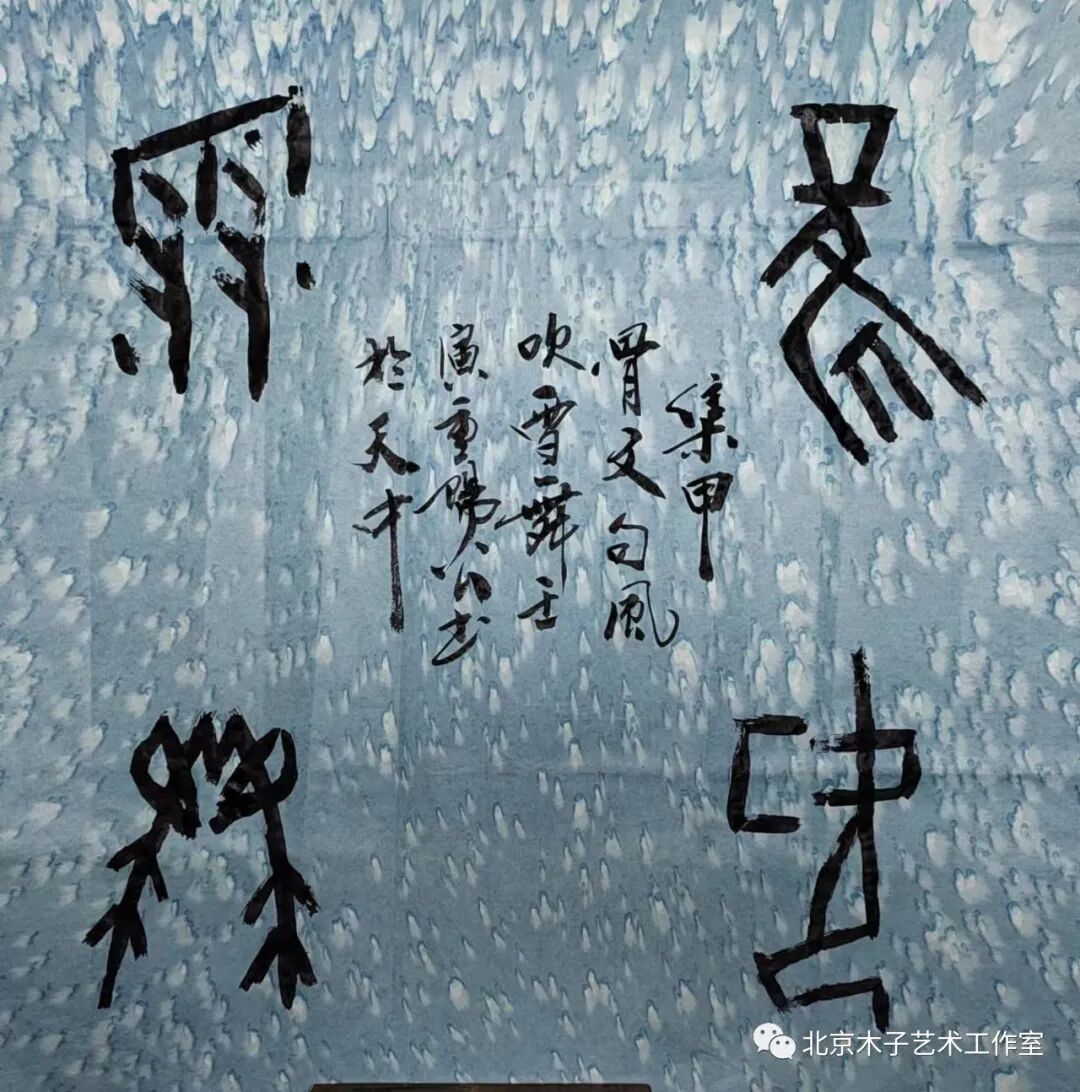 風吹
雪舞
集甲
骨文句風
吹雪舞壬
寅重陽公书
於天中
北京木子艺术工作室